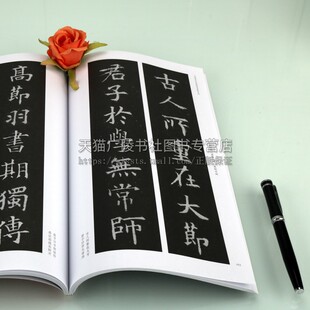 古人所重在大節
君子於學無常師
高節羽書期獨傳
天猫广陵书社图书专营店